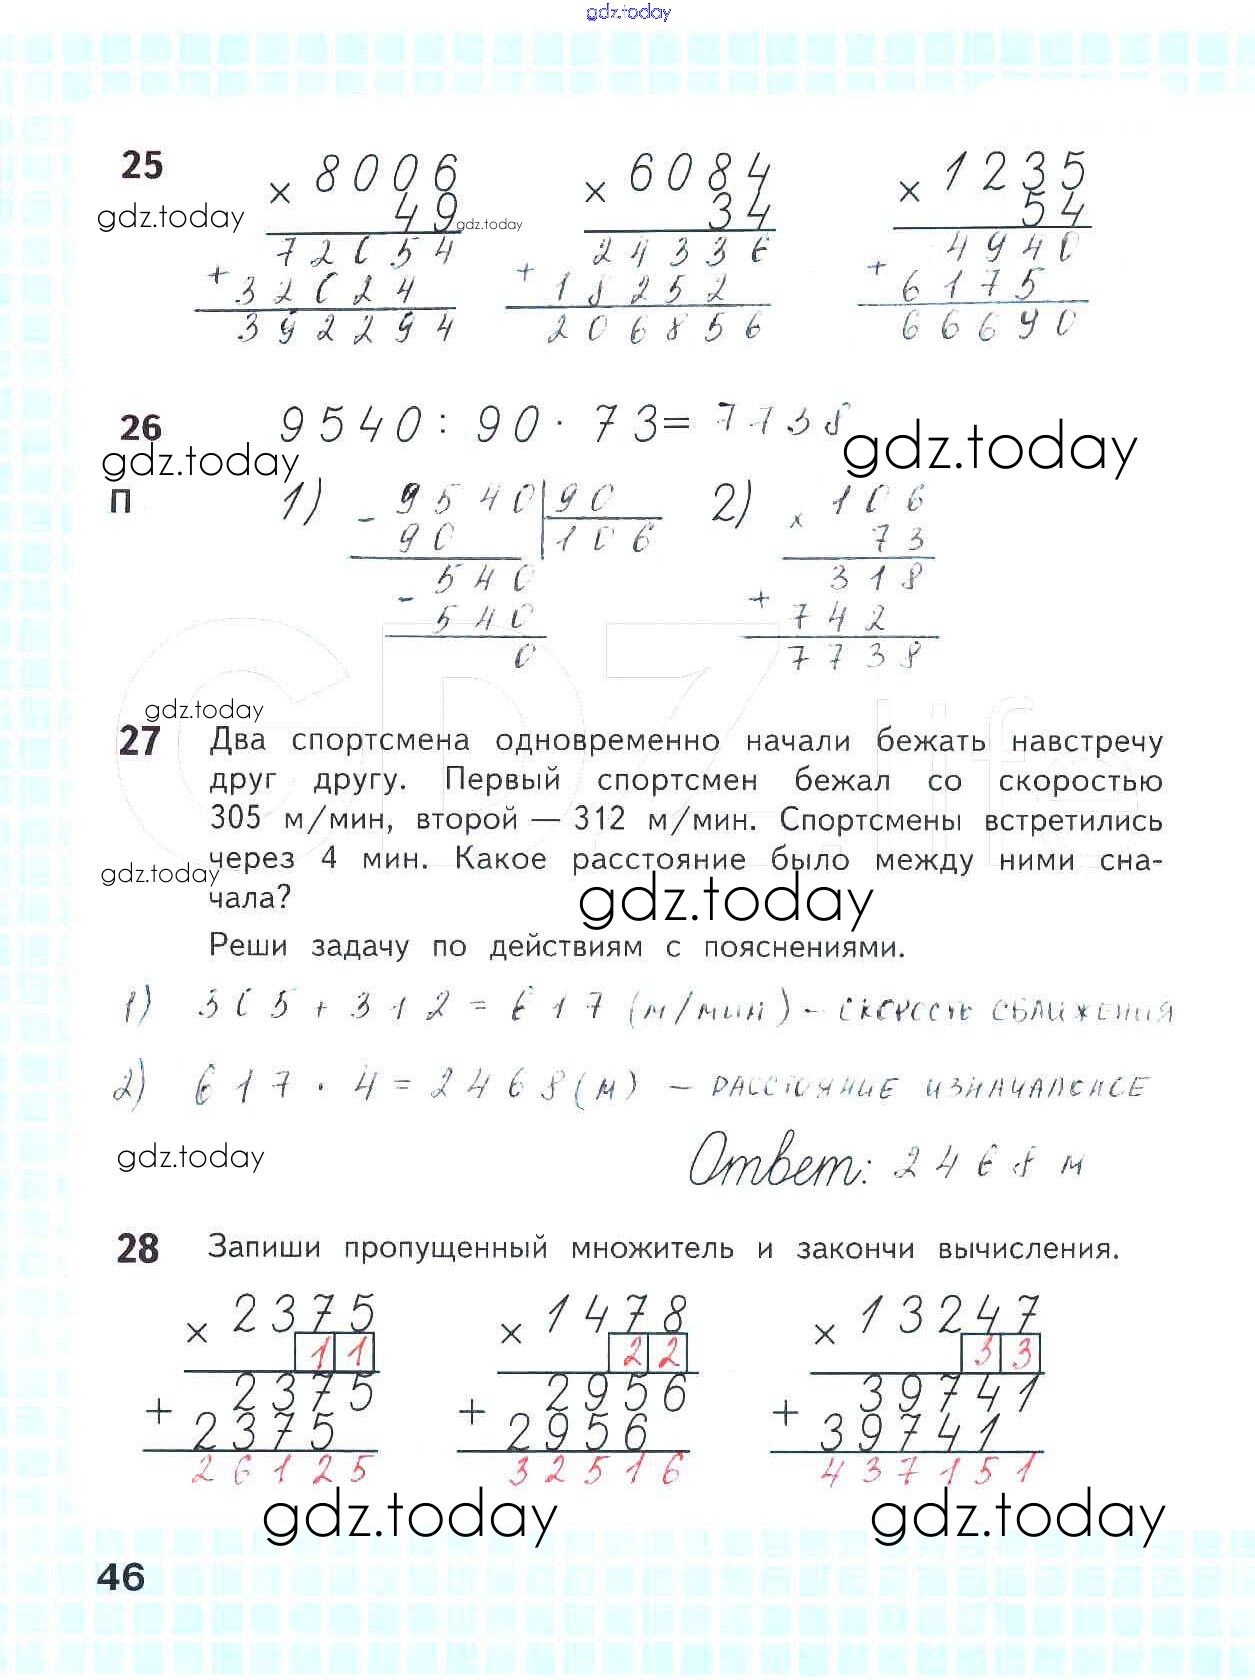 gdz.today
25
× 8006 × 6084 × 1235
49 34 54
gdz.today gdz.today
72054 24336 4940
+ 32024 + 18252 + 6175
392294 206856 66690
26 9540 : 90 · 73 = 7738
gdz.today gdz.today
П 1) - 9540 90 2) × 106
90 106 73
- 540 318
540 + 742
0 7738
GDZ.life
gdz.today
27 Два спортсмена одновременно начали бежать навстречу
друг другу. Первый спортсмен бежал со скоростью
305 м/мин, второй — 312 м/мин. Спортсмены встретились
через 4 мин. Какое расстояние было между ними сна-
gdz.today
чала?
gdz.today
Реши задачу по действиям с пояснениями.
1) 305 + 312 = 617 (м/мин) - скорость сближения
2) 617 · 4 = 2468 (м) - расстояние изначальное
gdz.today
Ответ: 2468 м
28 Запиши пропущенный множитель и закончи вычисления.
× 2375 × 1478 × 13247
11 22 33
+ 2375 + 2956 + 39741
2375 2956 39741
26125 32516 437151
gdz.today gdz.today
46